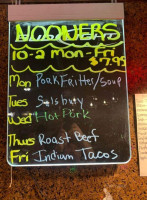 NOONERS
10-2 Mon-Fri
$7.99
Mon Pork Fritter/Soup
Tues Salsbury
Wed Hot Pork
Thurs Roast Beef
Fri Indian Tacos